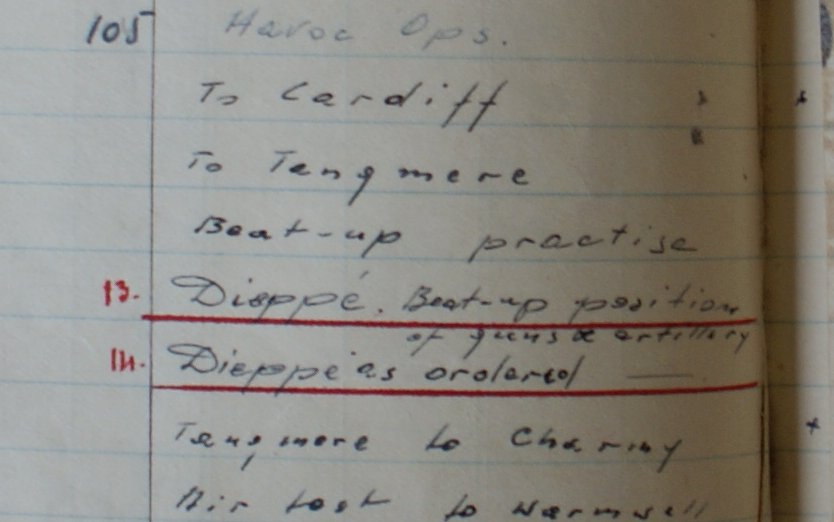 105 Havoc Ops.
To Cardiff
To Tangmere
Beat-up practise
13. Dieppé. Beat-up position
of guns & artillery
14. Dieppé as ordered —
Tangmere to Charmy
Air test to Warmwell